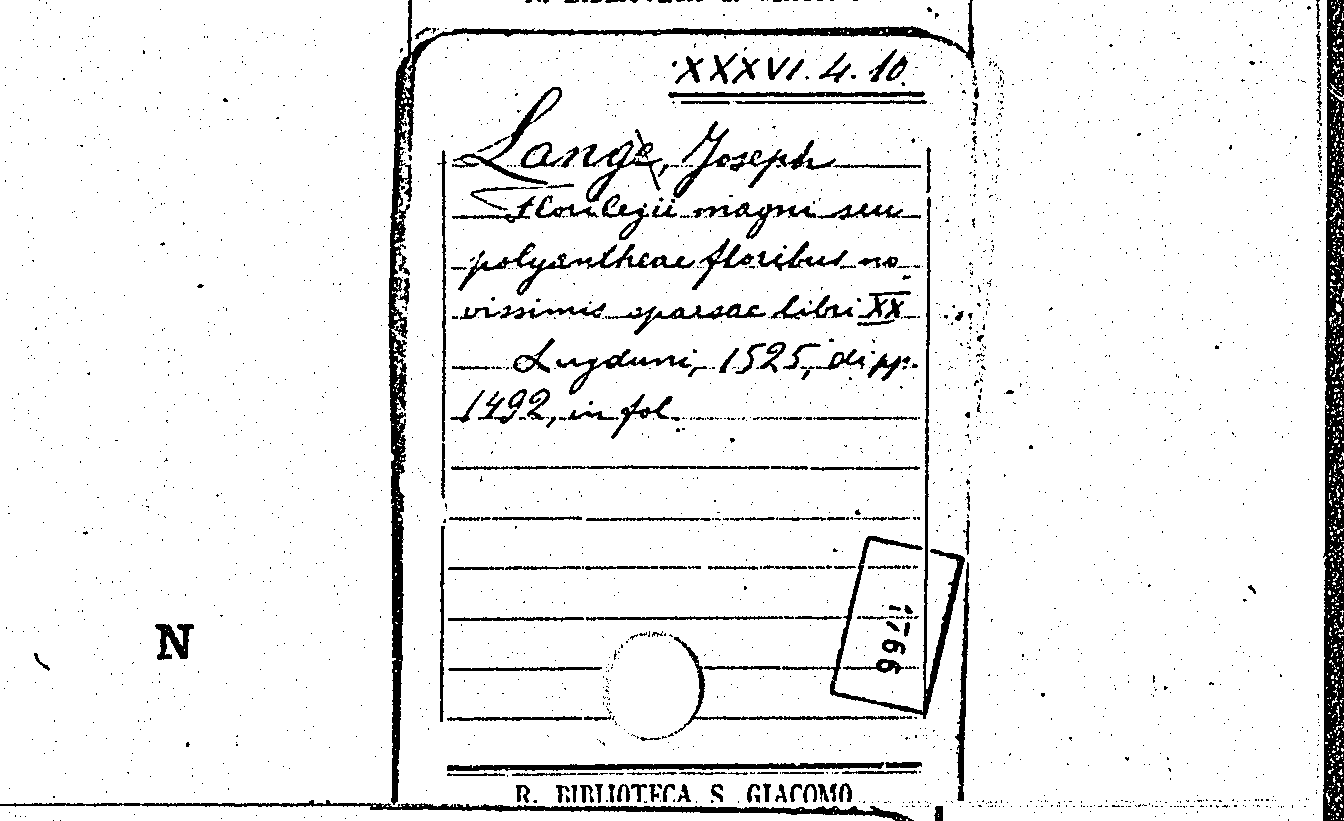 XXXVI. 4. 10
Lange, Joseph
Florilegii magni seu
polyantheae floribus no
vissimis sparsae libri XX
Lugduni, 1525, di pp.
1492, in fol.
N
R. BIBLIOTECA S. GIACOMO